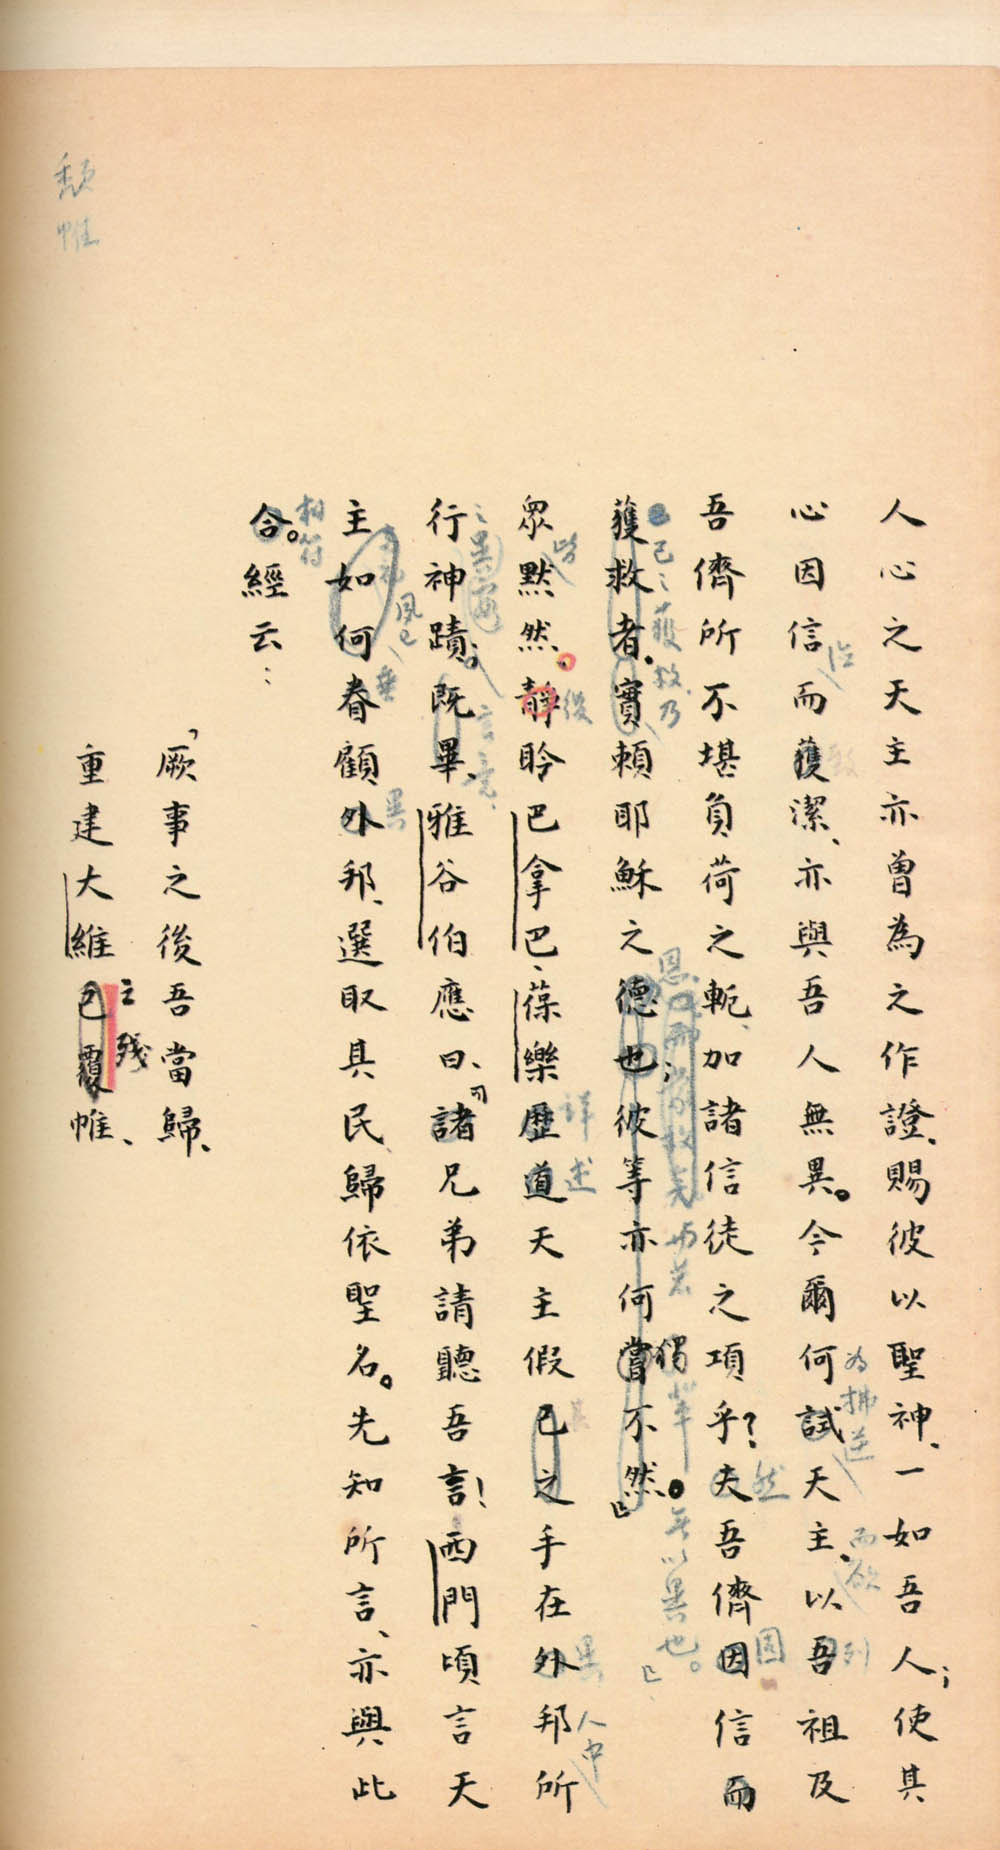 人心之天主亦曾為之作證、賜彼以聖神、一如吾人；使其
心因信而獲潔、亦與吾人無異。今爾何試天主、以吾祖及
吾儕所不堪負荷之軛、加諸信徒之項乎？夫吾儕因信而
獲救者、實賴耶穌之德也；彼等亦何嘗不然。」
眾默然。靜聆巴拿巴、葆樂歷道天主假己之手在外邦所
行神蹟；既畢、雅谷伯應曰、「諸兄弟請聽吾言！西門頃言天
主如何眷顧外邦、選取其民歸依聖名。先知所言、亦與此
合。經云：
「厥事之後吾當歸、
重建大維已覆帷、
為拂逆
而欲
列
然
固
已獲救乃
恩
獨
無以異也。」
皆
後
詳述
其
異
人中
言竟
夙已
垂
異
相符
之殘
頹
帷